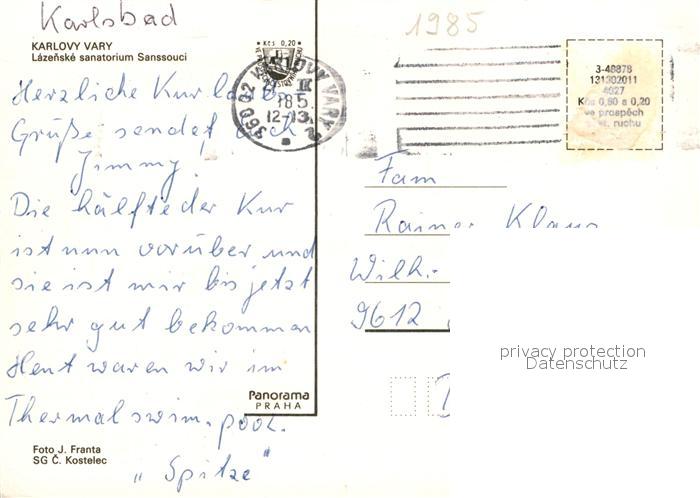 Karlsbad
1985
KARLOVY VARY
Lázeňské sanatorium Sanssouci
Kčs 0,20
360 02 KARLOVY VARY 2
18.5.
12-13
3-48878
131302011
4027
Kčs 0,60 a 0,20
ve prospěch
ruchu
Herzliche Kur
Grüße sendet
Jimmy.
Die hälfte der Kur
ist nun vorüber und
sie ist mir bis jetzt
sehr gut bekommen
Heut waren wir im
Thermalswim.pool.
"Spitze"
Fam
Rainer Klaus
Wilh.-
9612
Panorama
PRAHA
Foto J. Franta
SG Č. Kostelec
privacy protection
Datenschutz